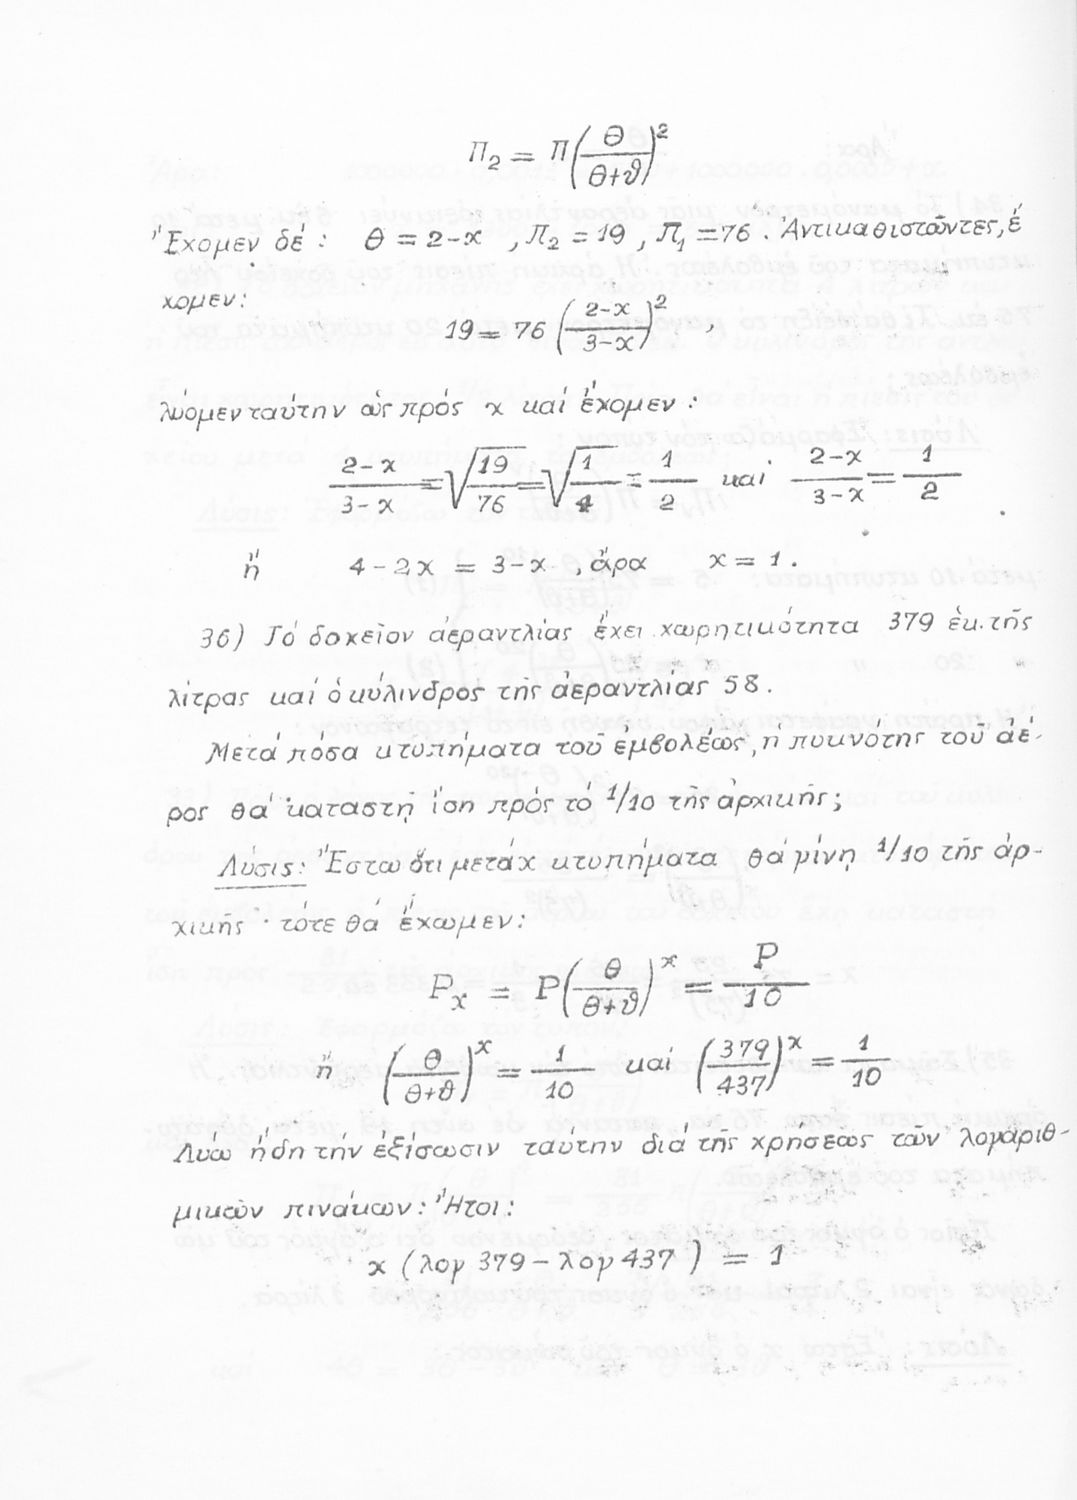 Π₂ = Π(Θ/(Θ+ϑ))²
Ἔχομεν δέ: Θ = 2-x , Π₂ = 19 , Π₁ = 76. Ἀντικαθιστῶντες, ἔ
χομεν:
19 = 76 ((2-x)/(3-x))² ,
λύομεν ταύτην ὡς πρός x καί ἔχομεν:
(2-x)/(3-x) = √(19/76) = √(1/4) = 1/2 καί (2-x)/(3-x) = 1/2
ἤ 4-2x = 3-x , ἄρα x = 1.
36) Τό δοχεῖον ἀεραντλίας ἔχει χωρητικότητα 379 ἑκ. τῆς
λίτρας καί ὁ κύλινδρος τῆς ἀεραντλίας 58.
Μετά πόσα κτυπήματα τοῦ ἐμβολέως, ἡ πυκνότης τοῦ ἀέ-
ρος θά καταστῇ ἴση πρός τό 1/10 τῆς ἀρχικῆς;
Λύσις: Ἔστω ὅτι μετά x κτυπήματα θά γίνῃ 1/10 τῆς ἀρ-
χικῆς· τότε θά ἔχωμεν:
Pₓ = P(θ/(θ+ϑ))ˣ = P/10
ἤ (θ/(θ+ϑ))ˣ = 1/10 καί (379/437)ˣ = 1/10
Λύω ἤδη τήν ἐξίσωσιν ταύτην διά τῆς χρήσεως τῶν λογαριθ-
μικῶν πινάκων: Ἤτοι:
x (λογ 379 - λογ 437) = 1